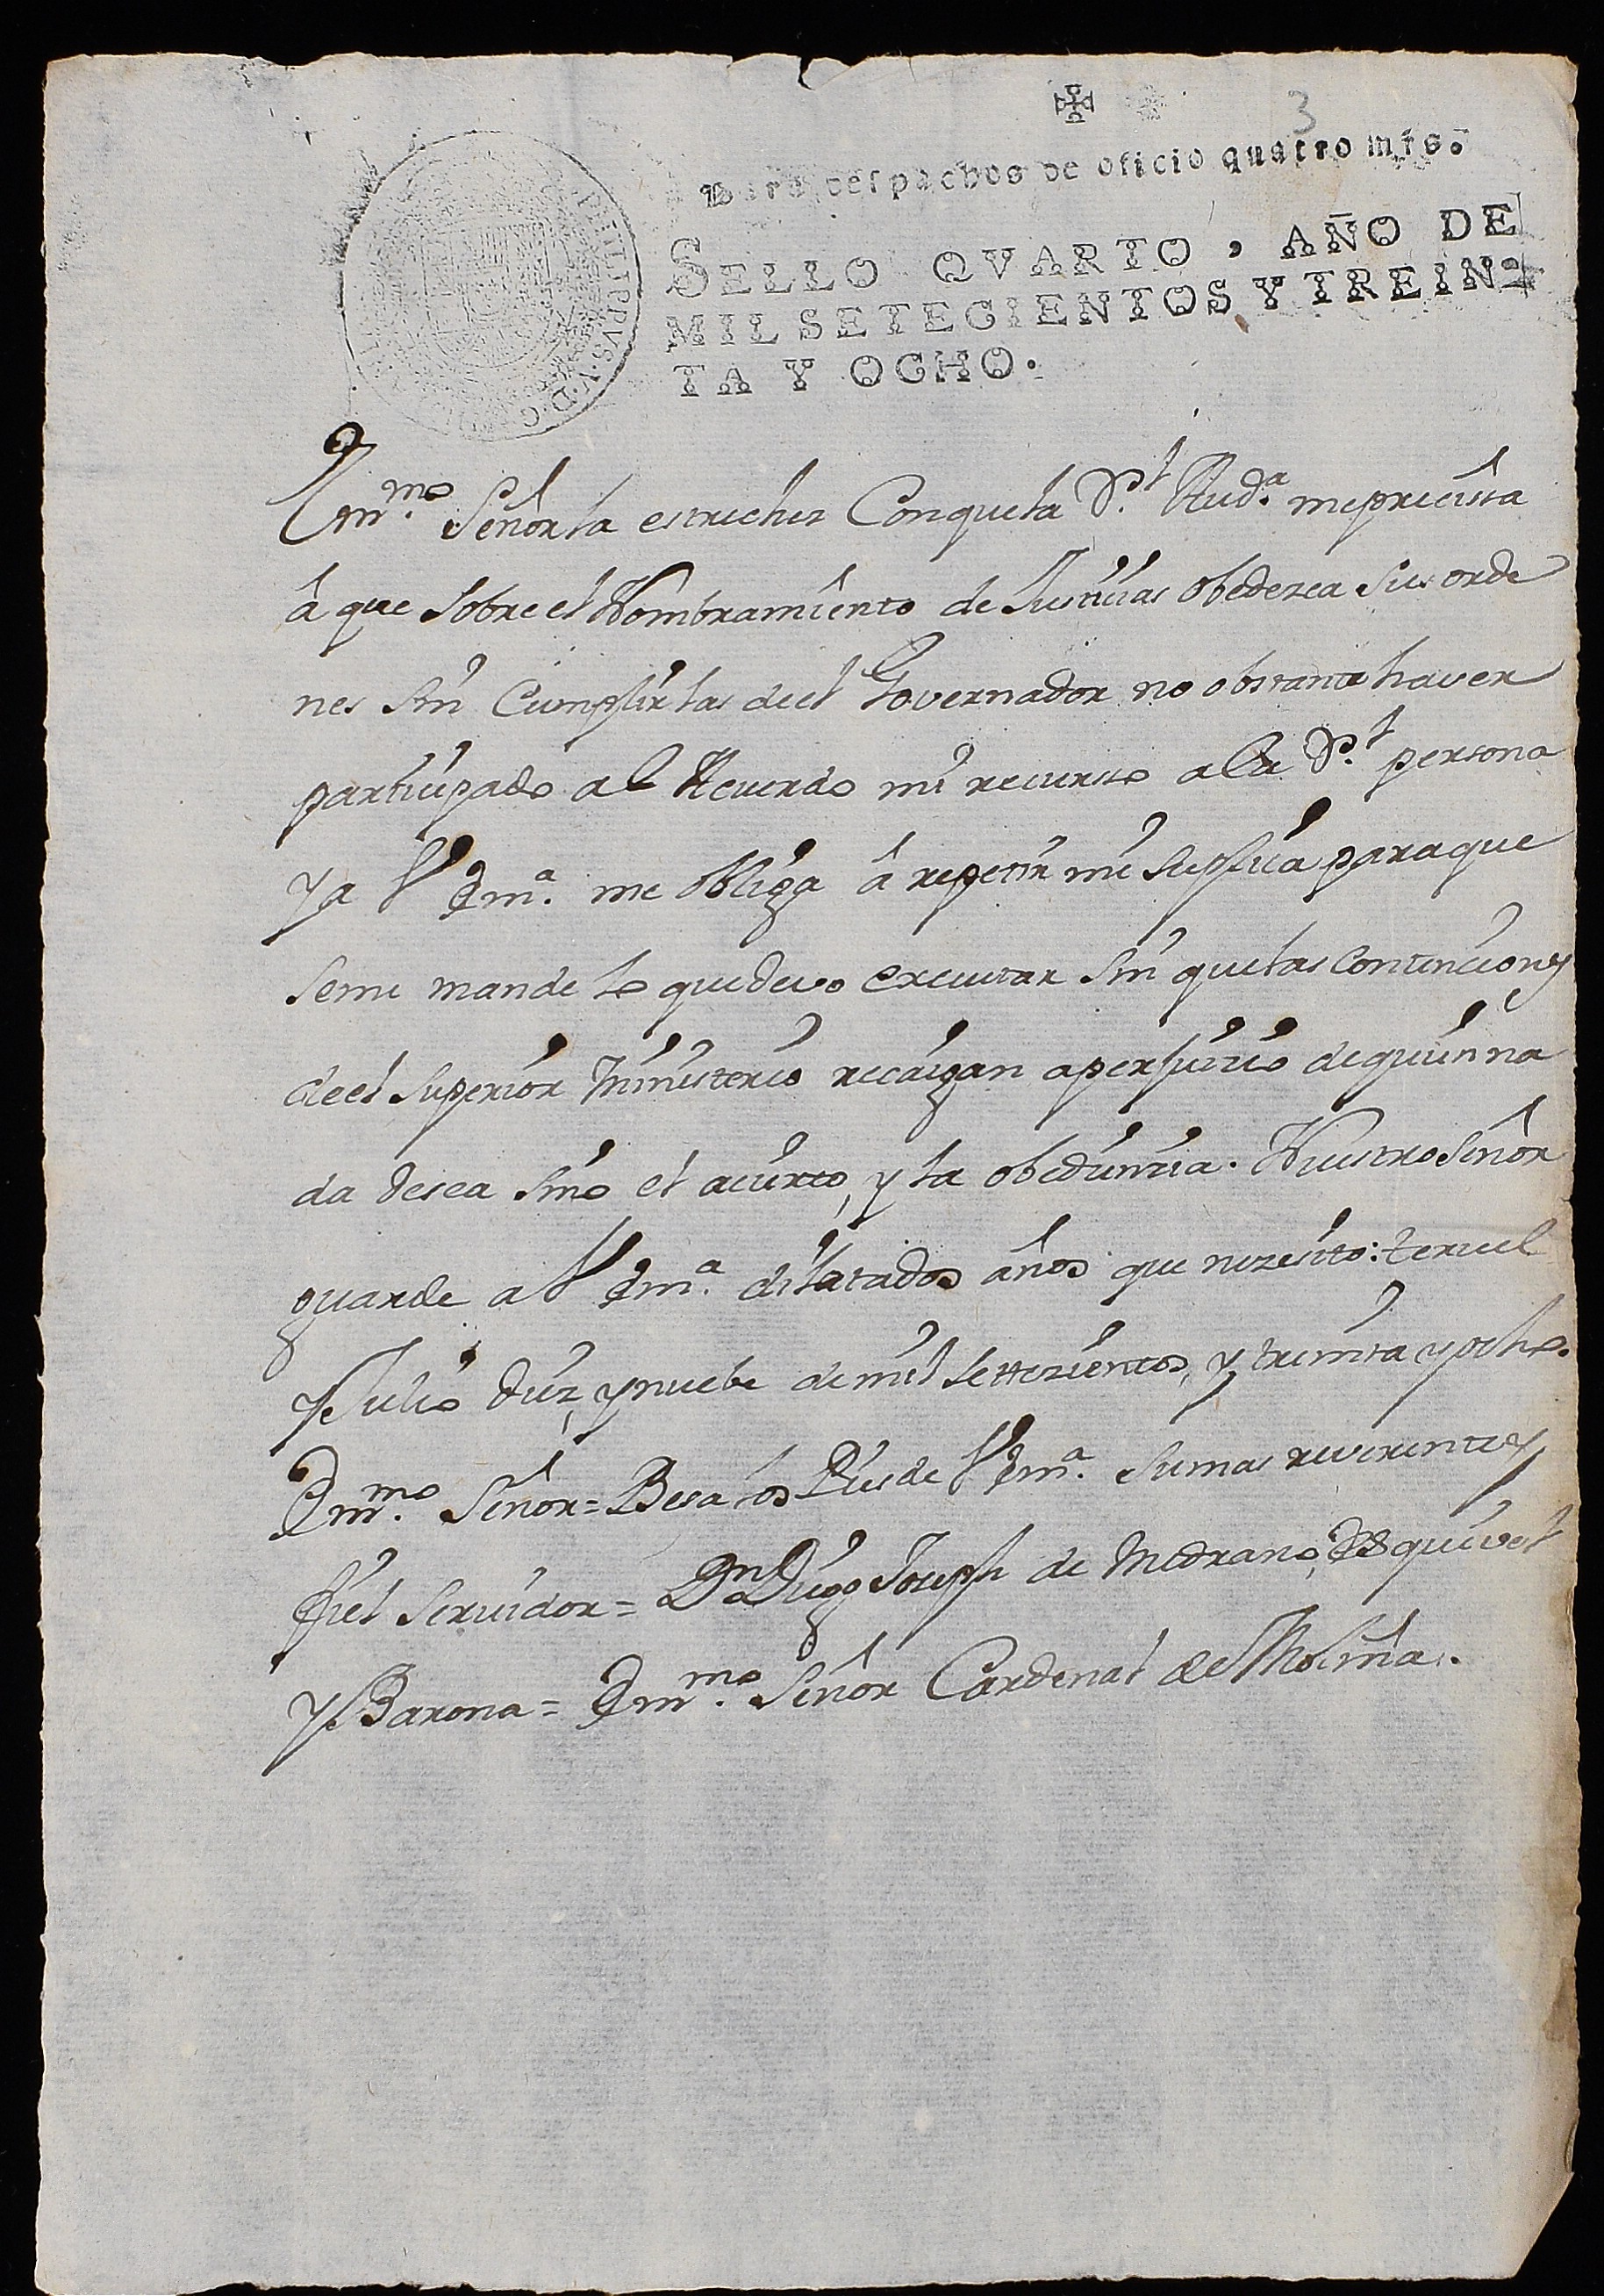 3
Para despachos de oficio quatro mrs.
SELLO QVARTO, AÑO DE
MIL SETECIENTOS Y TREIN-
TA Y OCHO.
PHILIPPVS. V. D. G.
Emmo. Señor la estrechez Conquela Rl. Audª. meprecissa
â que sobre el Nombramiento de Justicias obedezca sus orde
nes sin Cumplir las deel Governador no obstante haver
participado al Acuerdo mi recurso ala Rl. persona
y a V Emª. me obliga â repetir mi suplica paraque
seme mande lo quedevo executar sin quelas contenciones
deel superior Ministerio recaigan aperjuicio dequien na
da desea sino el acierto, y la obediencia. Nuestro Señor
guarde a V Emª. dilatados años que nezesito: teruel
y Julio diez, y nuebe demil settezientos, y treinta y ocho.
Emmo. Señor = Besa los Pies de V Emª. su mas reverente, y
fiel servidor = Dn Diego Joseph de Medrano, Esquivel
y Barona = Emmo. Señor Cardenal de Molina.